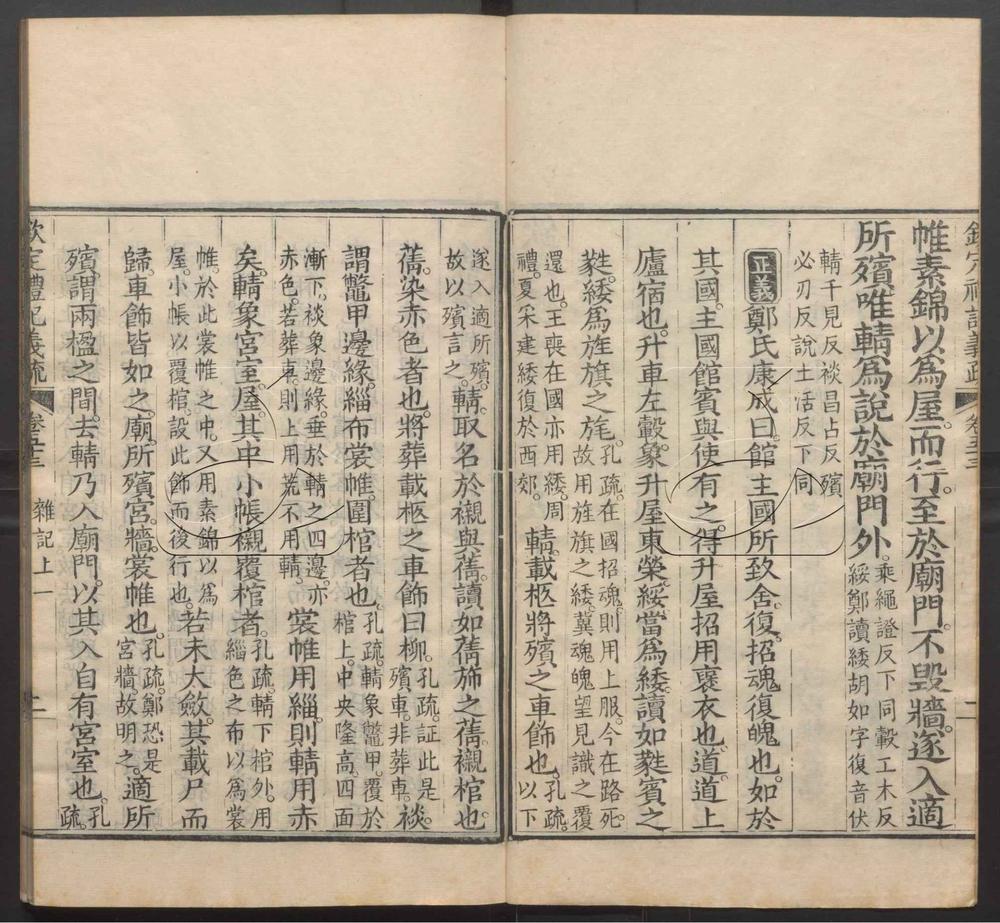 欽定禮記義疏 卷五十三 二
帷素錦以爲屋而行至於廟門不毀牆遂入適
所殯唯輤爲說於廟門外 乘繩證反下同轂工木反
綏鄭讀緌胡如字復音伏
輤千見反裧昌占反殯
必刃反說土活反下同
正義 鄭氏康成曰館主國所致舍復招魂復魄也如於
其國主國館賓與使有之得升屋招用裒衣也道道上
廬宿也升車左轂象升屋東榮綏當爲緌讀如蕤賓之
蕤緌爲旌旗之旄 孔疏在國招魂則用上服今在路死
故用旌旗之緌冀魂魄望見識之覆
還也王喪在國亦用緌周
禮夏采建緌復於西郊 輤載柩將殯之車飾也 孔疏
以下
遂入適所殯
故以殯言之 輤取名於襯與蒨讀如蒨旆之蒨襯棺也
蒨染赤色者也將葬載柩之車飾曰柳 孔疏証此是
殯車非葬車 裧
謂鼈甲邊緣緇布裳帷圍棺者也 孔疏輤象鼈甲覆於
棺上中央隆高四面
漸下裧象邊緣垂於輤之四邊亦
赤色若葬車則上用荒不用輤 裳帷用緇則輤用赤
矣輤象宮室屋其中小帳襯覆棺者 孔疏輤下棺外用
緇色之布以爲裳
帷於此裳帷之中又用素錦以爲
屋小帳以覆棺設此飾而後行也 若未大斂其載尸而
歸車飾皆如之廟所殯宮牆裳帷也 孔疏鄭恐是
宮牆故明之 適所
殯謂兩楹之間去輤乃入廟門以其入自有宮室也 孔
疏
欽定禮記義疏 卷五十三 雜記上一 二